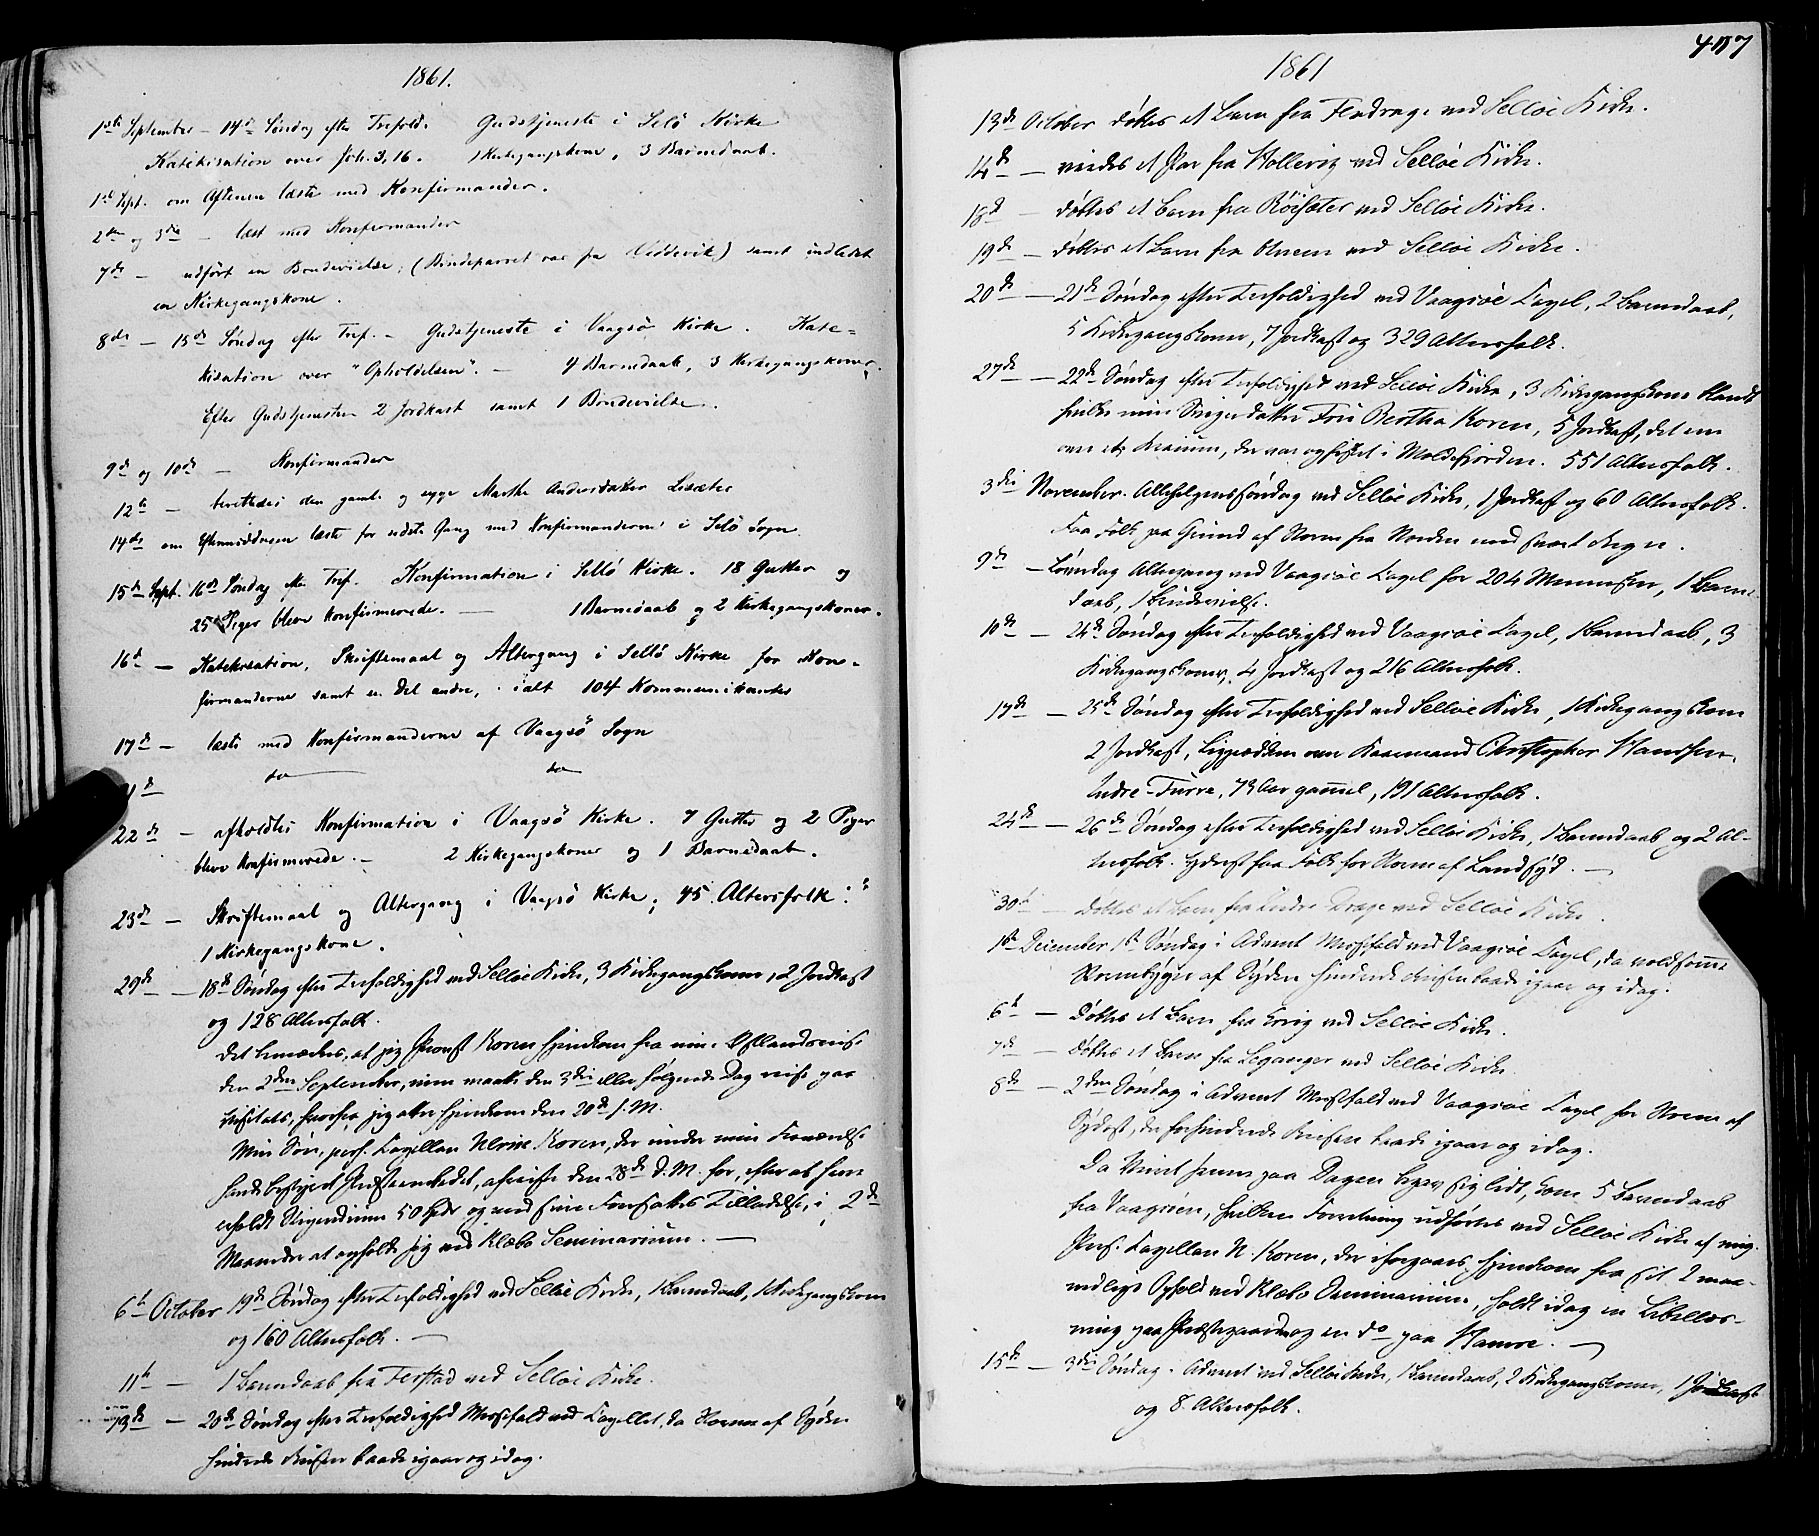 1861.
1ste September – 14de Søndag efter Trefold. Gudstjeneste i Selö Kirke
Katekisation over Joh. 3, 16. 1 Kirkegangskone, 3 Barnedaab.
1ste Sept. om Aftenen læste med Konfirmander.
2den og 3die – læst med Konfirmander
7de – udført en Brudevielse; (Brudeparret var fra ) samt indledet
en Kirkegangskone.
8de – 15de Søndag efter Tref. – Gudstjeneste i Vaagsö Kirke. Kate-
kisation over "Opholdelsen". – 4 Barnedaab, 3 Kirkegangskoner.
Efter Gudstjenesten 2 Jordkast samt 1 Brudevielse.
9de og 10de – Konfirmander
12te – berettedes den gamle og syge Marthe Andersdatter
14de om Eftermiddagen læste for sidste Gang med Konfirmanderne i Selö Sogn
15de Sept. 16de Søndag efter Tref. Konfirmation i Sellö Kirke. 18 Gutter og
25 Piger bleve konfirmerede. – 1 Barnedaab og 2 Kirkegangskoner.
16de – Katekisation, Skriftemaal og Altergang i Sellö Kirke for Kon-
firmanderne samt en Del andre, ialt 104 Kommunikanter
17de – læste med Konfirmanderne af Vaagsö Sogn
do do
22de – afholdtes Konfirmation i Vaagsö Kirke. 7 Gutter og 2 Piger
bleve konfirmerede. – 2 Kirkegangskoner og 1 Barnedaab.
23de – Skriftemaal og Altergang i Vaagsö Kirke; 45 Altersfolk.
1 Kirkegangskone.
29de – 18de Søndag efter Trefoldighed ved Selløe Kirke, 3 Kirkegangskoner, 2 Jordkast
og 128 Altersfolk.
Det bemærkes, at jeg Provst Koren hjemkom fra min Østlandsreise
den 2den September, men maatte den 3die eller følgende Dag reise paa
Visitats, hvorfra jeg atter hjemkom den 20de s. M.
Min Søn, pers. Capellan Ulrik Koren, der under min Fraværelse
havde bestyret Præsteembedet, afreiste den 28de d. M. for, efter at have
erholdt Stipendium 50 Spdr og med sine Foresattes Tilladelse, i 2de
Maaneder at opholde sig ved Klæbo Seminarium. –
6te October 19de Søndag efter Trefoldighed ved Selløe Kirke, 1 Barnedaab, 1 Kirkegangskone
og 160 Altersfolk. –
11te – 1 Barnedaab fra ved Selløe Kirke.
13de – 20de Søndag efter Trefoldighed Messefald ved Capellet, da Storm af Syden
hindrede Reisen baade igaar og idag.
407
1861
13de October døbtes et Barn fra ved Selløe Kirke.
14de – viedes et Par fra ved Selløe Kirke.
18de – døbtes et Barn fra Röisæter ved Selløe Kirke.
19de – døbtes et Barn fra ved Selløe Kirke.
20de – 21de Søndag efter Trefoldighed ved Vaagsøe Capel, 2 Barnedaab,
5 Kirkegangskoner, 7 Jordkast og 329 Altersfolk.
27de – 22de Søndag efter Trefoldighed ved Selløe Kirke, 3 Kirkegangskoner blandt
hvilke min Svigerdatter Fru Bertha Koren, 5 Jordkast, det ene
over et Kranium, der var opfisket i Moldefjorden. 551 Altersfolk.
3die November. Allehelgenssøndag ved Selløe Kirke, 1 Jordkast og 60 Altersfolk.
Faa Folk paa Grund af Storm fra Norden med svært Regn.
9de – Løverdag Altergang ved Vaagsøe Capel for 204 Mennesker, 1 Barne-
daab, 1 Brudevielse.
10de – 24de Søndag efter Trefoldighed ved Vaagsøe Capel, 1 Barnedaab, 3
Kirkegangskoner, 4 Jordkast og 216 Altersfolk.
17de – 25de Søndag efter Trefoldighed ved Selløe Kirke, 1 Kirkegangskone
2 Jordkast, Ligprædiken over Kaarmand Christopher Hanssen
Indre-Furre, 79 Aar gammel, 191 Altersfolk.
24de – 26de Søndag efter Trefoldighed ved Selløe Kirke, 1 Barnedaab og 2 Al-
tersfolk. Yderst faa Folk for Storm af Landsyd. –
30te – Døbtes et Barn fra Indre Drage ved Selløe Kirke.
1ste December 1ste Søndag i Advent Messefald ved Vaagsøe Capel, da voldsomme
Stormbyger af Syden hindrede Reisen baade igaar og idag.
6te – Døbtes et Barn fra Ervig ved Selløe Kirke.
7de – Døbtes et Barn fra Leganger ved Selløe Kirke.
8de – 2den Søndag i Advent Messefald ved Vaagsøe Capel for Storm af
Sydost, der forhindrede Reisen baade igaar og idag.
Da Veiret henne paa Dagen begav sig lidt, kom 5 Barnedaab
fra Vaagsøen, hvilken Forretning udførtes ved Selløe Kirke af mig.
Pers. Capellan U. Koren, der iforgaars hjemkom fra sit 2 maa-
nedlige Ophold ved Klæbo Seminarium, holdt idag en Bibellæs-
ning paa Præstegaarden og en do paa Hamre. –
15de – 3die Søndag i Advent ved Selløe Kirke, 1 Barnedaab, 2 Kirkegangskoner, 1 Jordkast
og 8 Altersfolk.